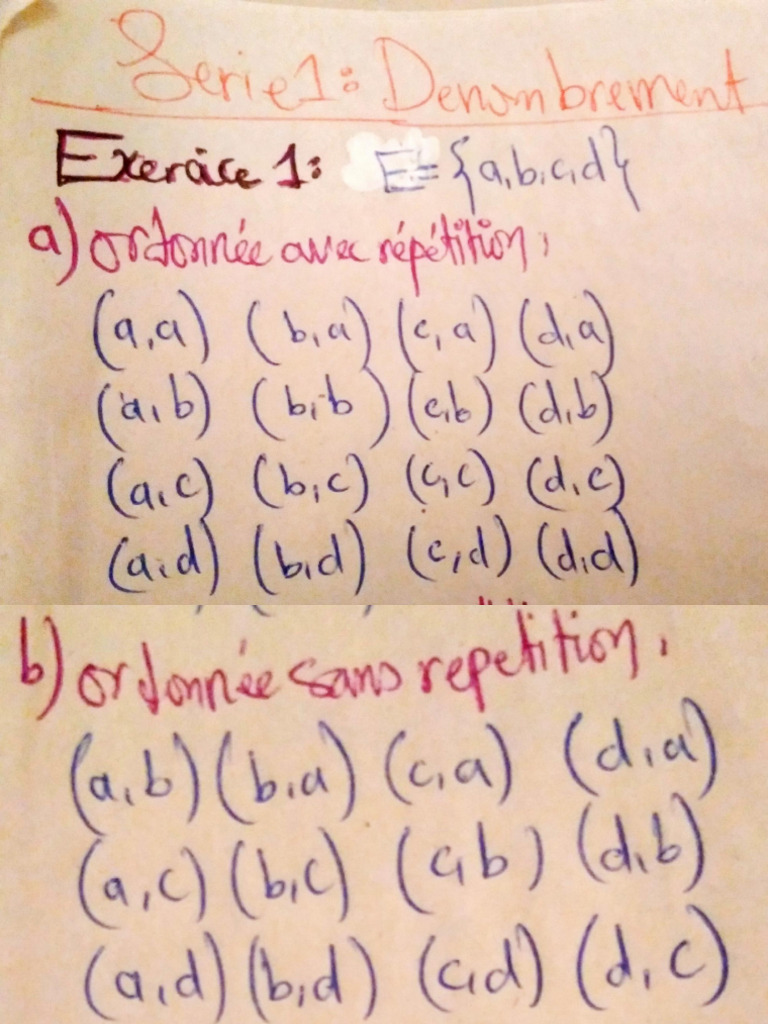 Serie1: Denombrement
Exercice 1: E={a,b,c,d}
a) ordonnée avec répétition,
(a,a) (b,a) (c,a) (d,a)
(a,b) (b,b) (c,b) (d,b)
(a,c) (b,c) (c,c) (d,c)
(a,d) (b,d) (c,d) (d,d)
b) ordonnée sans repetition,
(a,b) (b,a) (c,a) (d,a)
(a,c) (b,c) (c,b) (d,b)
(a,d) (b,d) (c,d) (d,c)